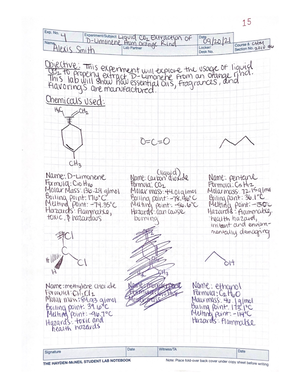 15
Exp. No. 4
Experiment/Subject Liquid CO₂ Extraction of
D-Limonene from Orange Rind
Date 09/20/21
Name Alexis Smith
Lab Partner
Locker/
Desk No.
Course &
Section No.
Objective: This experiment will explore the usage of liquid
CO₂ to properly extract D-Limonene from an orange rind.
This lab will show how essential oils, fragrances, and
flavorings are manufactured.
Chemicals used:
CH₃
O=C=O
(liquid)
Name: D-Limonene
Formula: C₁₀H₁₆
Molar Mass: 136.24 g/mol
Boiling point: 176°C
Melting point: -74.35°C
Hazards: flammable,
toxic, & hazardous
Name: carbon dioxide
Formula: CO₂
Molar mass: 44.01 g/mol
Boiling point: -78.46°C
Melting point: -56.6°C
Hazards: can cause
burning
Name: pentane
Formula: C₅H₁₂
Molar mass: 72.15 g/mol
Boiling point: 36.1°C
Melting point:
Hazards: flammable,
health hazard,
irritant and environ-
mentally damaging
Cl
Cl
H
OH
Name: methylene chloride
Formula: CH₂Cl₂
Molar mass: 84.93 g/mol
Boiling point: 39.6°C
Melting point: -96.7°C
Hazards: toxic and
health hazards
Name: ethanol
Formula: C₂H₆O
Molar mass: 46.1 g/mol
Boiling point: 78°C
Melting point: -114°C
Hazards: Flammable
Signature
Date
Witness/TA
Date
THE HAYDEN-McNEIL STUDENT LAB NOTEBOOK
Note: Place fold-over back cover under copy sheet before writing